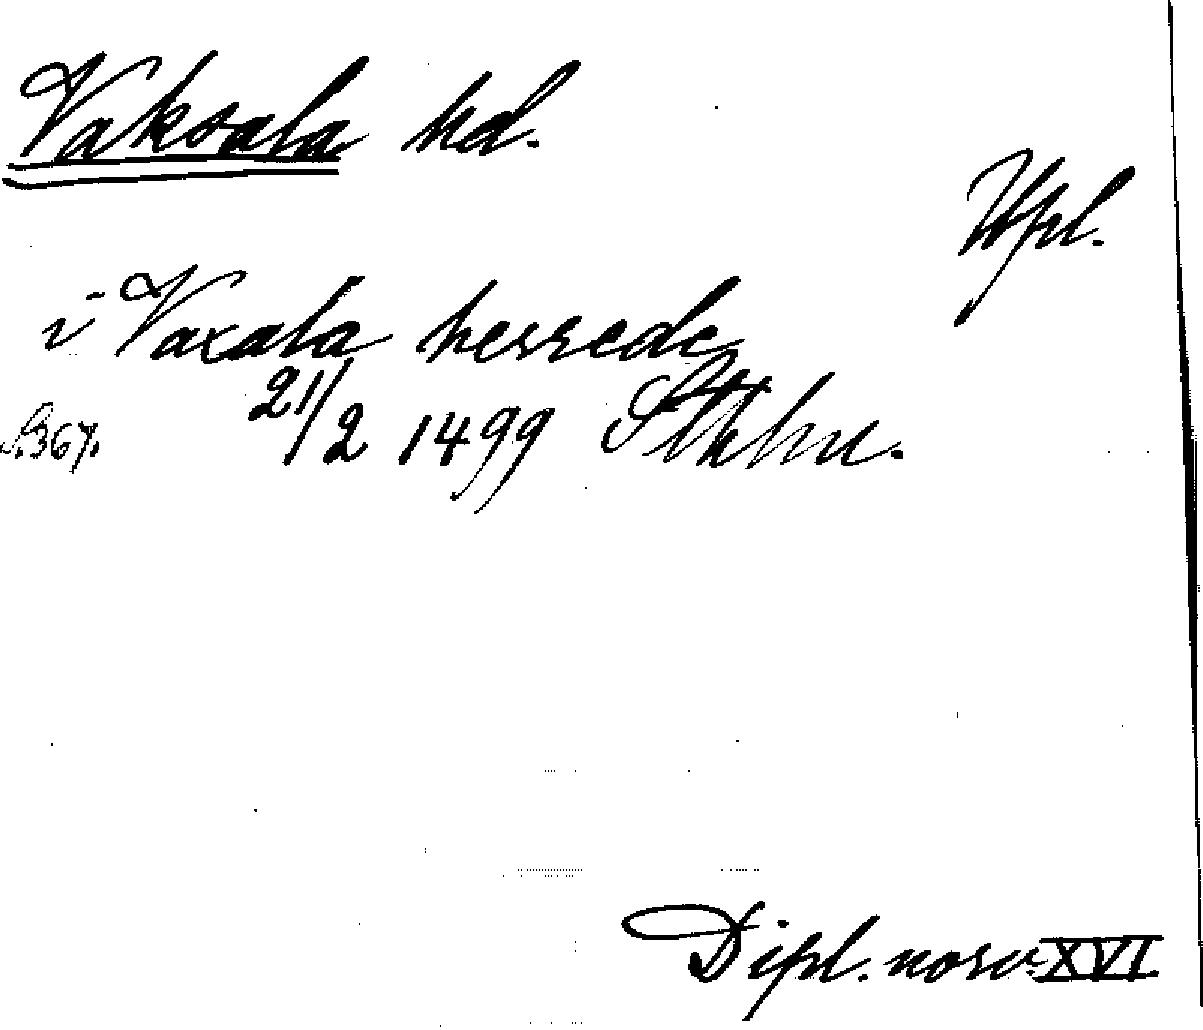 Vaksala hd.
Upl.
i Vaxala herrede
S. 367. 21/2 1499 Sthlm.
Dipl. norv. XVI